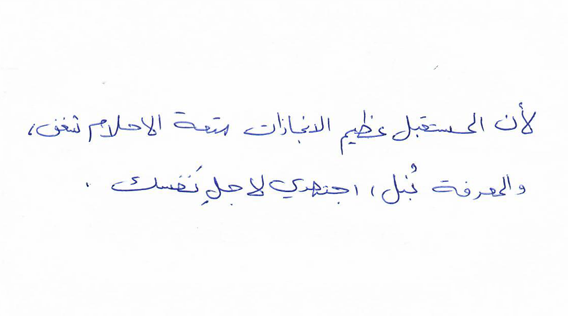 لأن المستقبل عظيم الانجازات متعة الاحلام شغف،
والمعرفة نُبل، اجتهدي لاجلِ نَفسك .